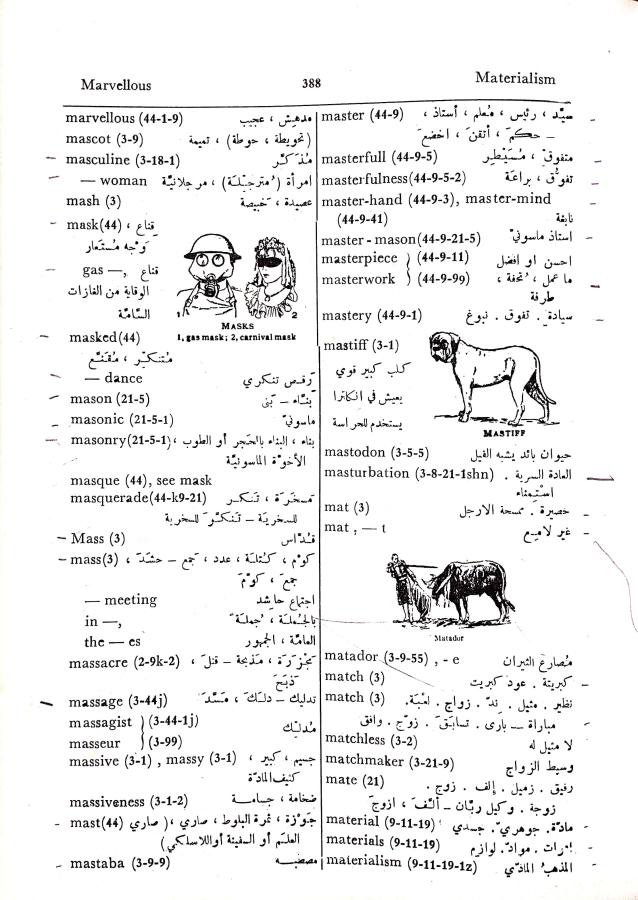 Marvellous 388 Materialism
marvellous (44-1-9) مدهش ، عجيب
mascot (3-9) (تحويطة ، حوطة) ، تميمة
masculine (3-18-1) مُذكَّر
— woman امرأة (مُترجِّلة) ، مرجلانيَّة
mash (3) عصيدة ، خبيصة
mask(44) ، قناع
وجه مُستعار
gas —, قناع
الوقاية من الغازات
السامَّة
1 2
MASKS
1, gas mask; 2, carnival mask
masked(44)
مُتنكِّر ، مُقنَّع
— dance رقص تنكري
mason (21-5) بنَّاء – بنَى
masonic (21-5-1) ماسوني
masonry(21-5-1) ، بناء ، البناء بالحَجَر أو الطوب
الأخوَّة الماسونيَّة
masque (44), see mask
masquerade(44-k9-21) تمسخرَة ، تنكُّر
للسخرية – تنكَّر للسخرية
Mass (3) قُدَّاس
mass(3) ، كَوم ، كُتلة ، عدد ، جمع – حشَد
جمعَ ، كوَّم
— meeting اجتماع حاشد
in —, بالجُملة ، جُملةً
the — es العامَّة ، الجمهور
massacre (2-9k-2) مجزرَة ، مذبحة – قتلَ ،
ذبَّح
massage (3-44j) تدليك – دلَّك ، مسَّد
massagist (3-44-1j) مُدلِّك
masseur (3-99)
massive (3-1) , massy (3-1) جسيم ، كبير ،
كثيف المادَّة
massiveness (3-1-2) ضخامة ، جسامة
mast(44) جَوزة ، ثمرة البلوط ، صاري ، ( صاري
العلَم أو السفينة أو اللاسلكي)
mastaba (3-9-9) مصطبة
master (44-9) سيِّد ، رئيس ، مُعلم ، أستاذ ،
– حكمَ ، أتقنَ ، اخضعَ
masterfull (44-9-5) متفوق ، مُسيطِر
masterfulness(44-9-5-2) تفوُّق ، براعة
master-hand (44-9-3), master-mind
(44-9-41) نابغة
master - mason(44-9-21-5) استاذ ماسوني
masterpiece (44-9-11) احسن او افضل
masterwork (44-9-99) ما عمل ، تُحفة ،
طرفة
mastery (44-9-1) سيادة . تفوق . نبوغ
mastiff (3-1)
كلب كبير قوي
يعيش في انكلترا
يستخدم للحراسة
MASTIFF
mastodon (3-5-5) حيوان بائد يشبه الفيل
masturbation (3-8-21-1shn) . العادة السرية
استمناء
mat (3) حصيرة . ممسحة الارجل
mat , — t غير لاميع
Matador
matador (3-9-55) , - e مُصارع الثيران
match (3) كبريتة . عود كبريت
match (3) نظير . مثيل . نِدّ . زواج . لعبة.
مباراة – بارى . تسابقَ . زوّج . وافق
matchless (3-2) لا مثيل له
matchmaker (3-21-9) وسيط الزواج
mate (21) رفيق . زميل . إلف . زوج .
زوجة . وكيل ربَّان – ألَّف ، ازوجَ
material (9-11-19) مادَّة. جوهري. جسدي
materials (9-11-19) مواد. لوازم
materialism (9-11-19-1z) المذهبُ المادّي